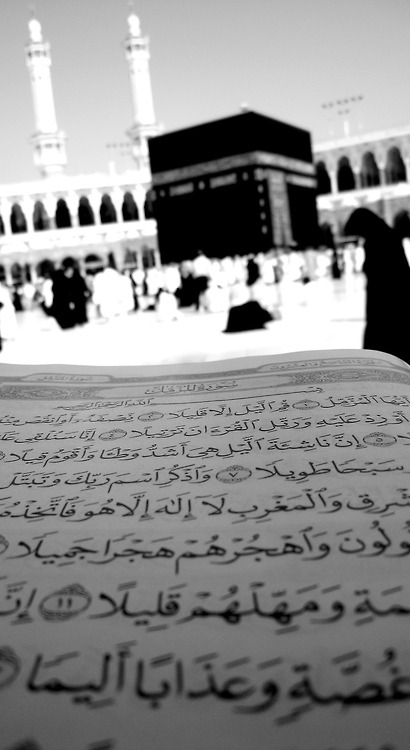 سُورَةُ المُزَّمِّلِ
يَٰٓأَيُّهَا ٱلْمُزَّمِّلُ ١ قُمِ ٱلَّيْلَ إِلَّا قَلِيلًا ٢ نِّصْفَهُۥٓ أَوِ ٱنقُصْ مِنْهُ
أَوْ زِدْ عَلَيْهِ وَرَتِّلِ ٱلْقُرْءَانَ تَرْتِيلًا ٤ إِنَّا سَنُلْقِى
إِنَّ نَاشِئَةَ ٱلَّيْلِ هِىَ أَشَدُّ وَطْـًٔا وَأَقْوَمُ قِيلًا
سَبْحًا طَوِيلًا ٧ وَٱذْكُرِ ٱسْمَ رَبِّكَ وَتَبَتَّلْ
شْرِقِ وَٱلْمَغْرِبِ لَآ إِلَٰهَ إِلَّا هُوَ فَٱتَّخِذْهُ
ولُونَ وَٱهْجُرْهُمْ هَجْرًا جَمِيلًا
مَةِ وَمَهِّلْهُمْ قَلِيلًا ١١ إِنَّ
غُصَّةٍ وَعَذَابًا أَلِيمًا